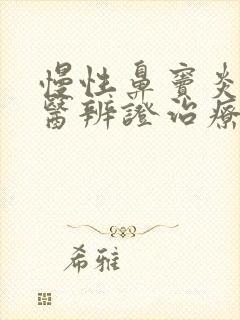 慢性鼻竇炎
醫辨證治療
希雅